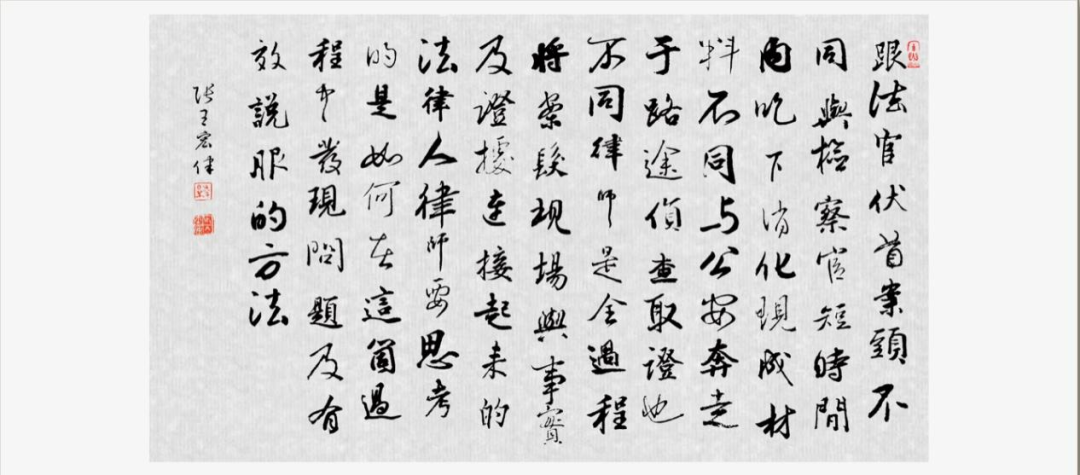 跟法官伏首案頭不
同與檢察官短時間
內吃下消化現成材
料不同與公安奔走
于路途偵查取證也
不同律師是全過程
將案發現場與事實
及證據連接起来的
法律人律師要思考
的是如何在這箇過
程中發現問題及有
效説服的方法
張王宏律